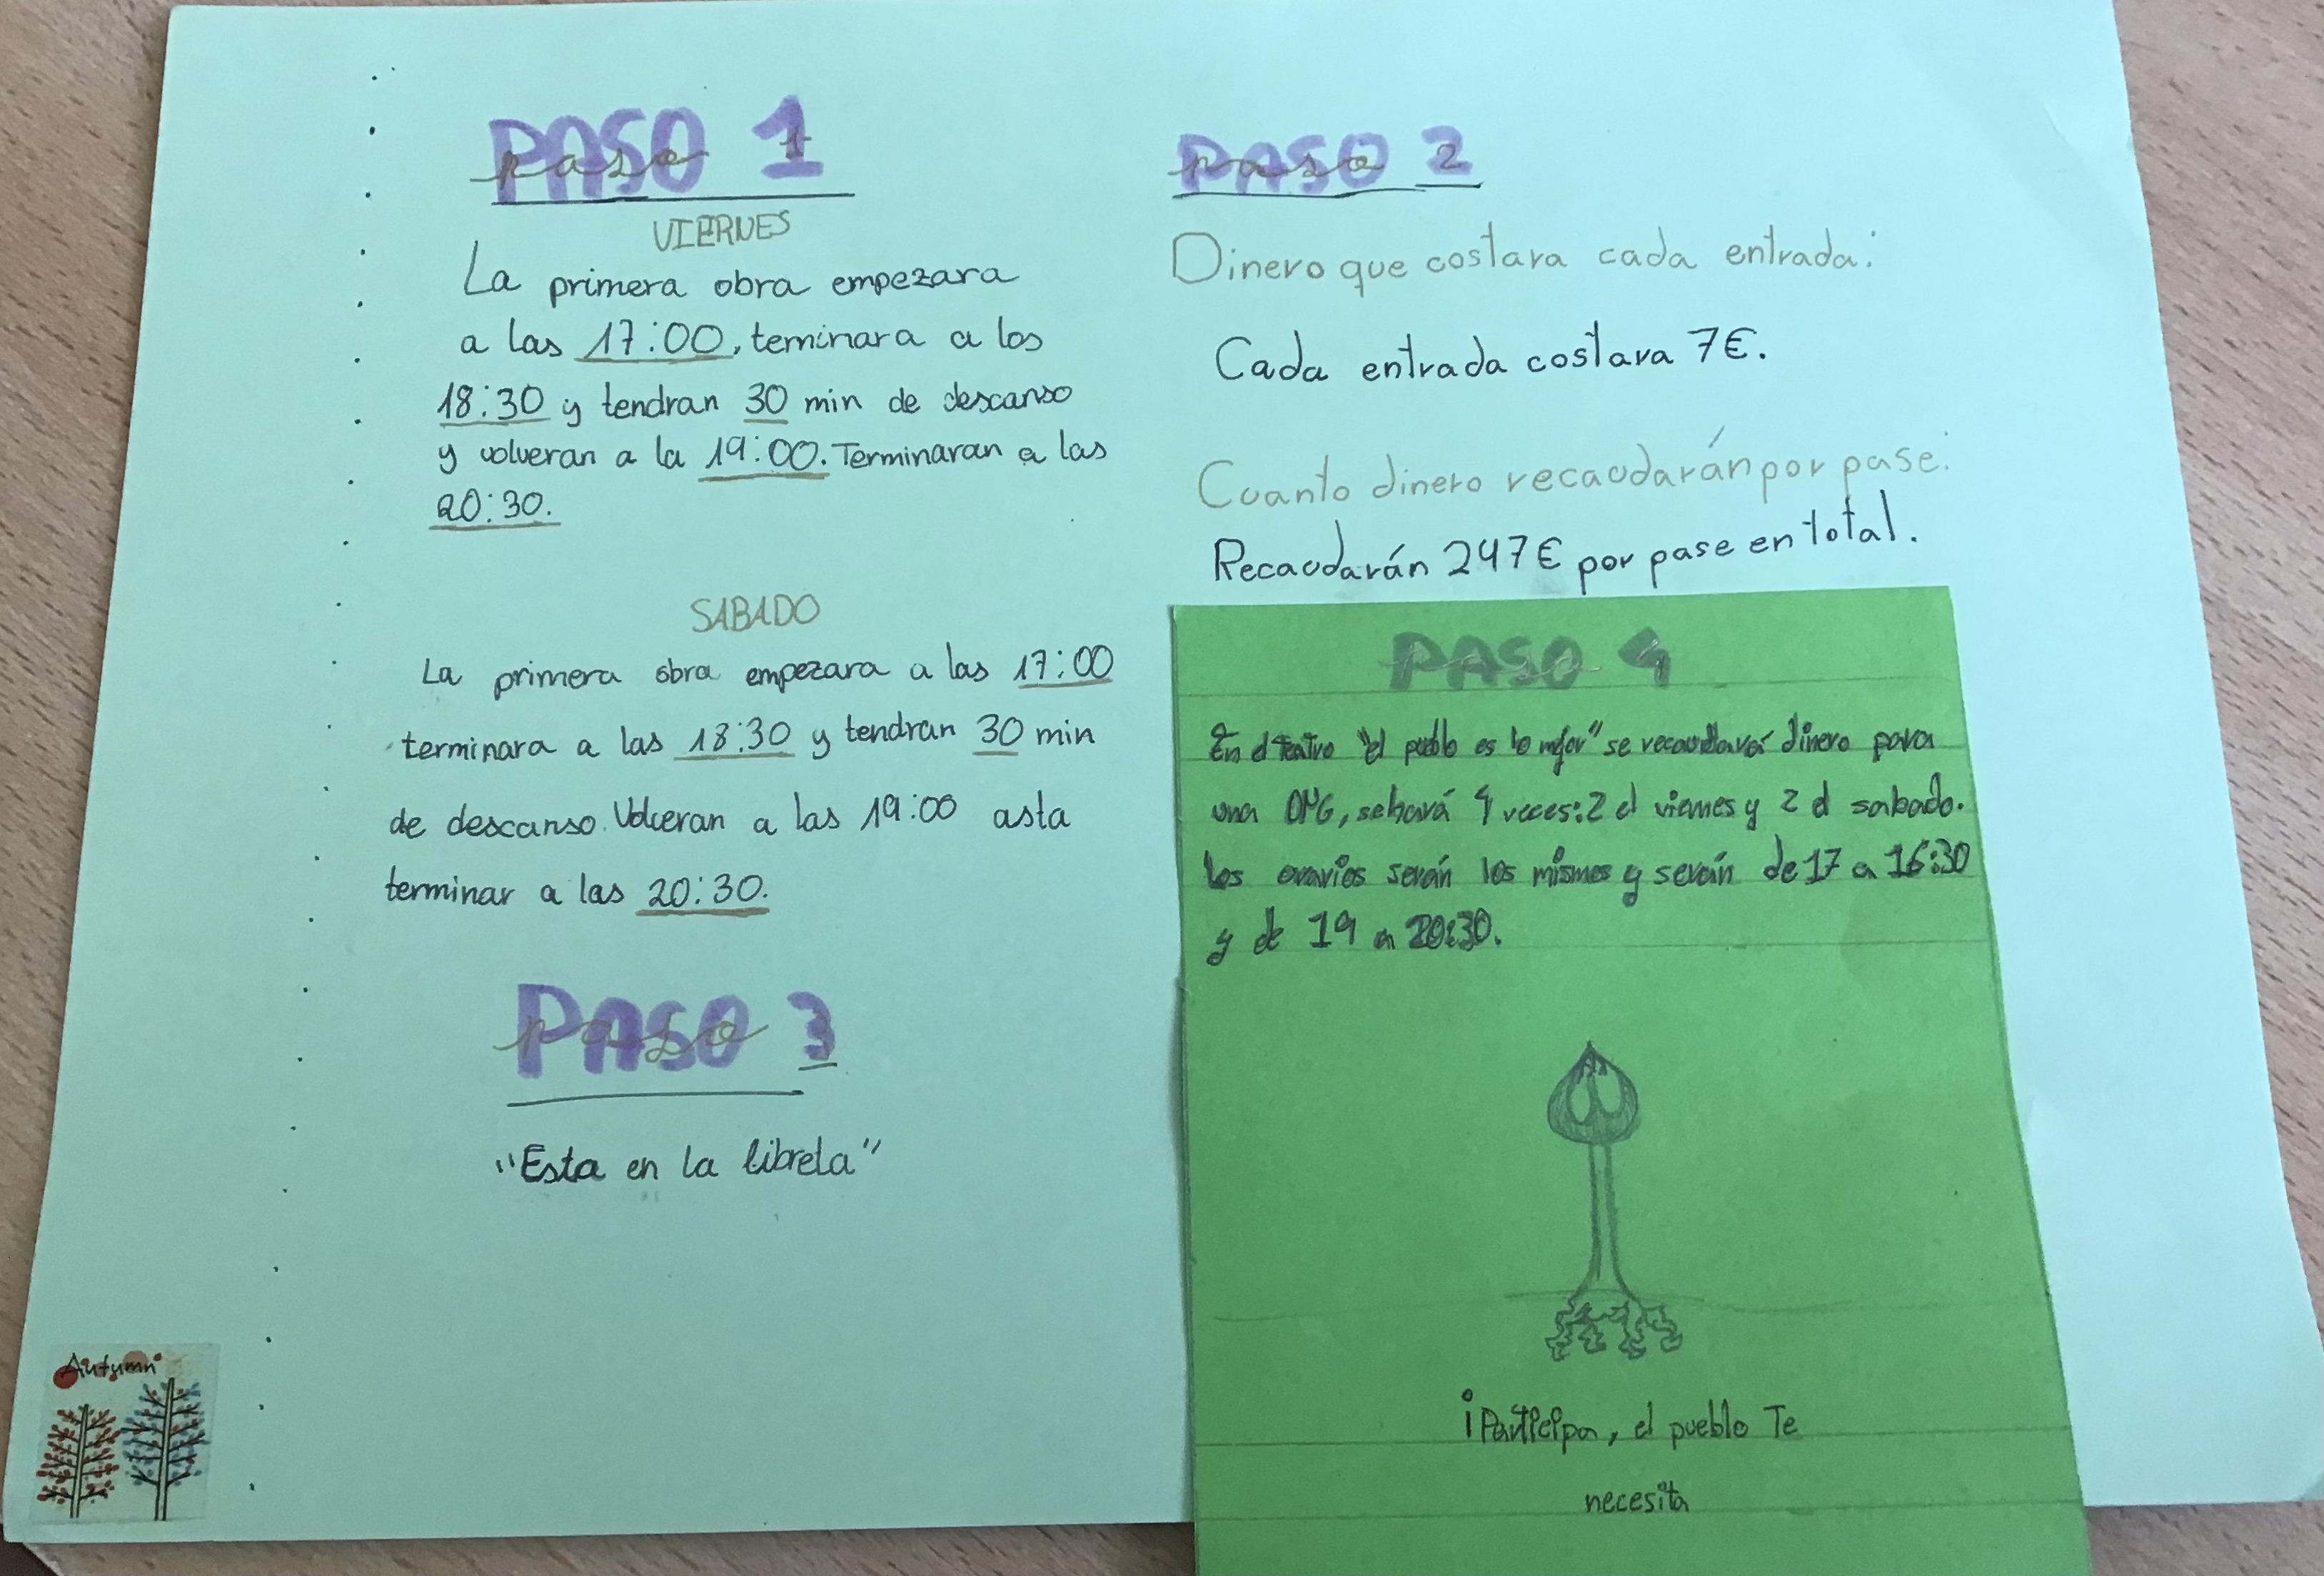 PASO 1
VIERNES
La primera obra empezara
a las 17:00, teminara a los
18:30 y tendran 30 min de descanso
y volveran a la 19:00. Terminaran a las
20:30.
SABADO
La primera obra empezara a las 17:00
terminara a las 18:30 y tendran 30 min
de descanso. Volveran a las 19:00 asta
terminar a las 20:30.
PASO 3
"Esta en la libreta"
Autumn
PASO 2
Dinero que costara cada entrada:
Cada entrada costara 7€.
Cuanto dinero recaudarán por pase:
Recaudarán 247€ por pase en total.
PASO 4
En el teatro "el pueblo es lo mejor" se recaudará dinero para
una ONG, se hará 4 veces: 2 el viernes y 2 el sabado.
los orarios serán los mismos y serán de 17 a 16:30
y de 19 a 20:30.
¡Participa, el pueblo Te
necesita